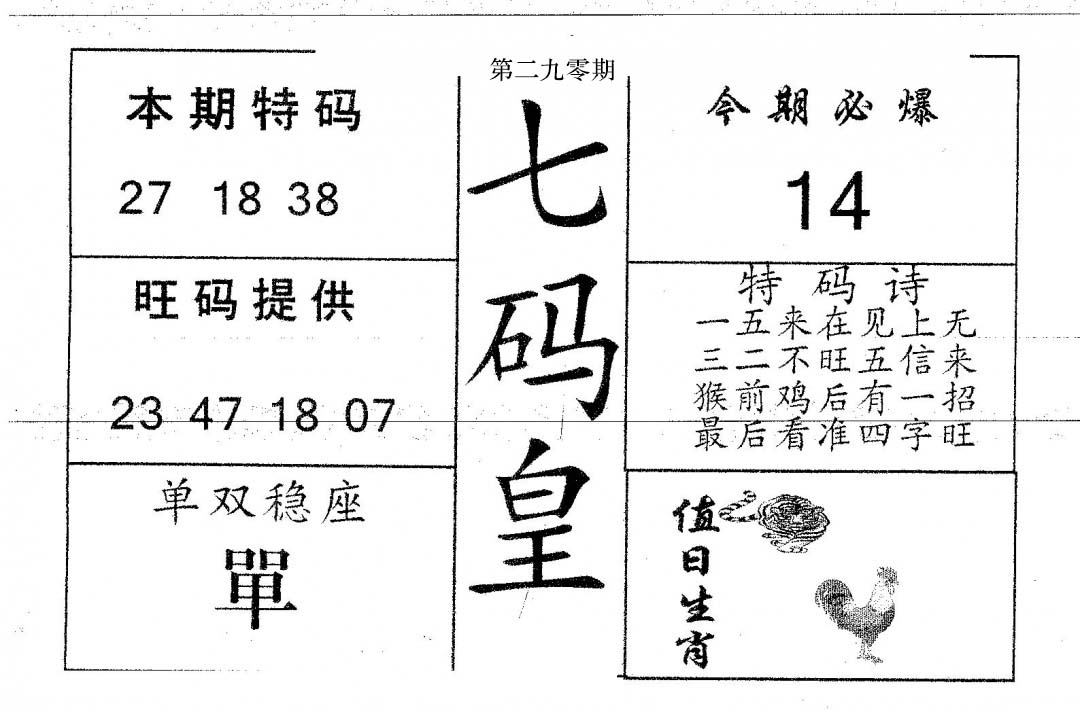 第二九零期
七码皇
本期特码
27 18 38
旺码提供
23 47 18 07
单双稳座
單
今期必爆
14
特码诗
一五来在见上无
三二不旺五信来
猴前鸡后有一招
最后看准四字旺
值日生肖